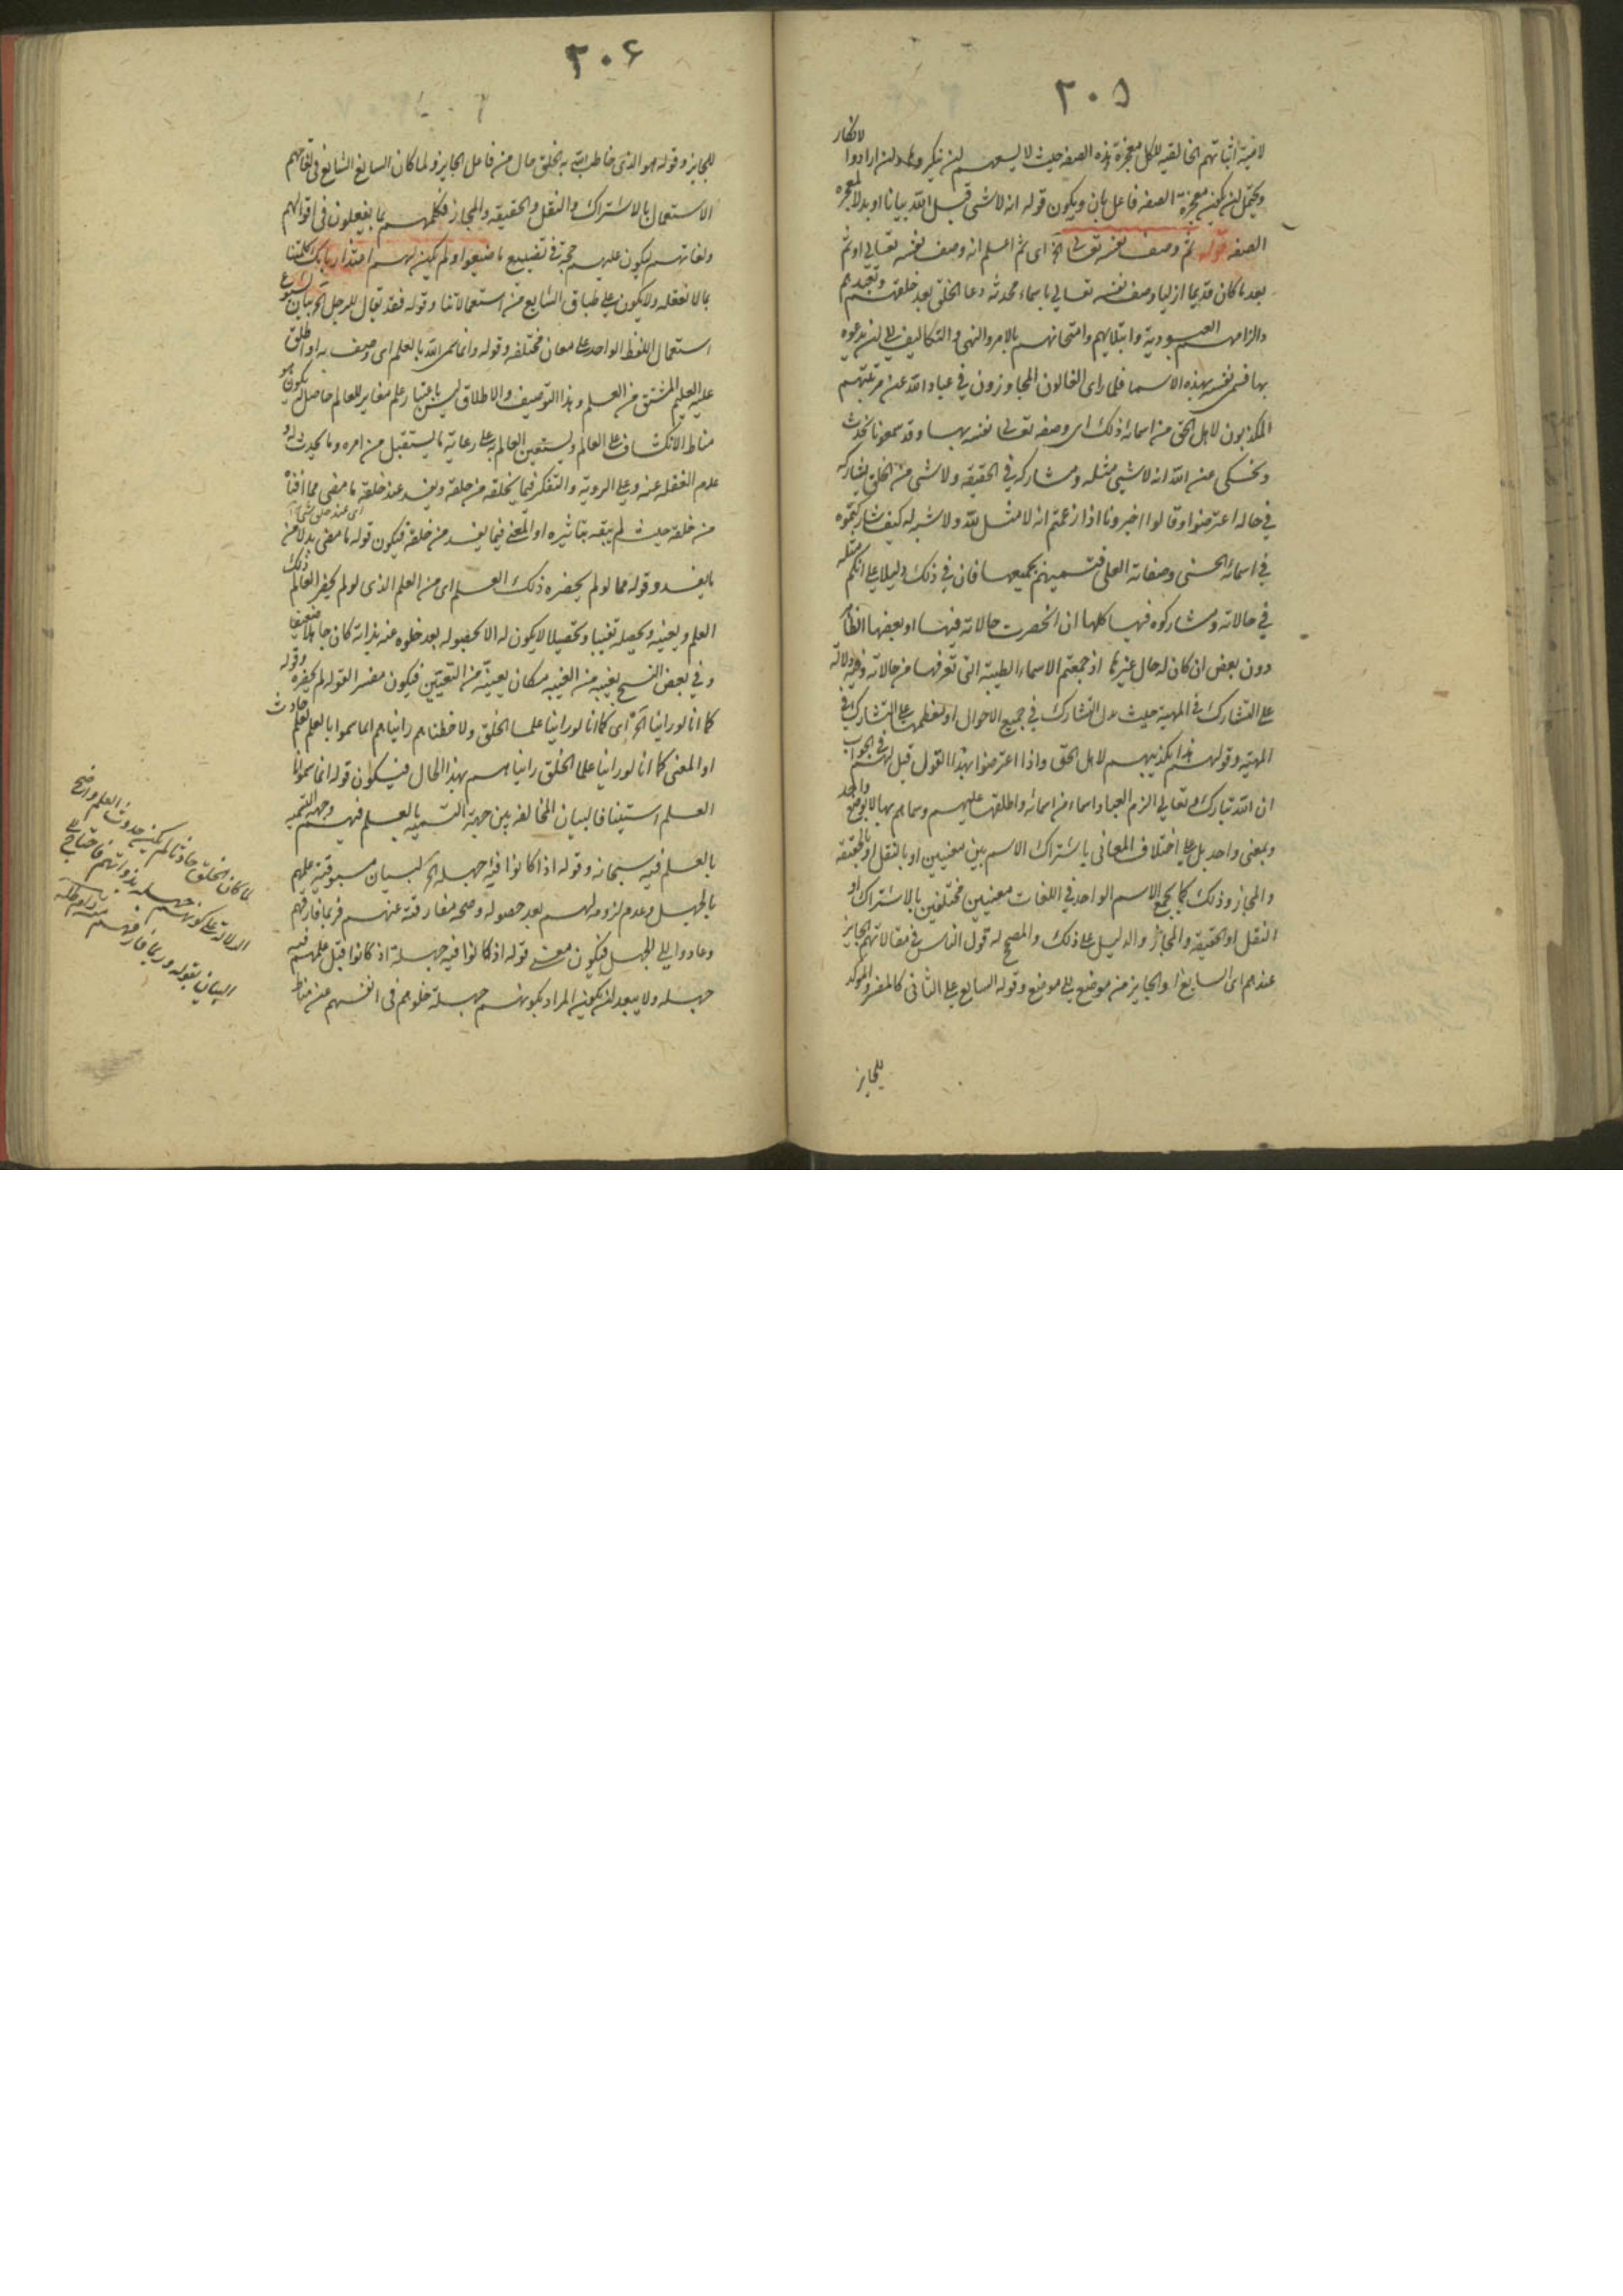 ٢٠٥
لانكار
لامنية اثباتهم الخالقيه للكل معجزة هذه الصفه حيث لا يسعهم لن ينكروها ولن ارادوا
ويحتمل لن يكون معجزة الصفه فاعل بان ويكون قوله انه لا شى قبل الله بيانا او بدلا لمعجزه
الصفه قوله ثم وصف نفسه تعالى الخ اى ثم اعلم انه وصف نفسه تعالى او ثم
بعد ما كان قديما ازليا وصف نفسه تعالى باسماء محدثه دعا الخلق بعد خلقهم وتعبدهم
والزامهم العبودية وابتلايهم وامتحانهم بالامر والنهى والتكاليف الى لن يدعوه
بها فسمى نفسه بهذه الاسما فلما راى الغالون المجاوزون فى عباد الله عن مرتبتهم
المكذبون لاهل الحق من اسمائه ذلك اى وصفه تعالى نفسه بها وقد سمعونا نحدث
ونحكى عن الله انه لا شىء مثله ومشاركه فى الحقيقه ولا شى من الخلق يشاركه
فى حاله اعترضوا وقالوا اخبرونا اذا زعمتم انه لا مثل لله ولا شبه له كيف شاركتموه
فى اسمائه الحسنى وصفاته العلى فتسميتم بجميعها فان فى ذلك دليلا على انكم مثله
فى حالاته ومشاركوه فيها كلها ان انحصرت حالاته فيها او بعضها
دون بعض ان كان له حال غيرها اذ جمعتم الاسماء الطيبة التى تعرفها من حالاته وفيه دلالة
على التشارك فى المهية حيث دل التشارك فى جميع الاحوال او معظمها على التشارك فى
المهية وقولهم هذا تكذيبهم لاهل الحق واذا اعترضوا بهذا القول قيل لهم فى الجواب
ان الله تبارك وتعالى الزم العباد اسماء من اسمائه واطلقها عليهم وسماهم بها لا بوضع واحد
وبمعنى واحد بل على اختلاف المعانى باشتراك الاسم بين معنيين او بالنقل او بالحقيقه
والمجاز وذلك كما يجمع الاسم الواحد فى اللغات معنيين مختلفين بالاشتراك او
النقل او الحقيقه والمجاز والدليل على ذلك والمصحح له قول الناس فى مقالاتهم الجايز
عندهم اى السايغ او الجايز من موضع الى موضع وقوله السايع على الثانى كالمفسر والموكد
للجايز
٢٠۶
للجايز وقوله هو الذى خاطب الله به الخلق حال من فاعل الجايز ولما كان السايغ الشايع فى تفاهم
الاستعمال بالاشتراك والنقل والحقيقه والمجاز فكلمهم بما يفعلون فى اقوالهم
ولغاتهم ليكون عليهم حجة فى تضييع ما ضيعوا ولم يكن لهم اعتذار بانك كلمتنا
بما لا نعقله ولا يكون على طباق الشايع من استعمالاتنا وقوله فقد يقال للرجل الخ بيان شيوع
استعمال اللفظ الواحد على معان مختلفه وقوله وانما سمى الله بالعلم اى وصف به او اطلق
عليه العليم المشتق من العلم وهذا التوصيف والاطلاق ليس باعتبار علم مغاير للعالم حاصل له يكون هو
مناط الانكشاف على العالم وليستعين العالم به على رعاية ما يستقبل من امره وما يحدث له و
عدم الغفله عنه وعلى الرويه والتفكر فيما يخلقه من خلقه ويفسد عند خلقه ما مضى مما افناه
اى عند خلق شى
من خلقه حيث لم يبقه بتاثيره او المعنى فيما يفسد من خلقه فيكون قوله ما مضى بدلا من
ما يفسد وقوله مما لو لم يحضره ذلك العلم اى من العلم الذى لو لم يحضر العالم ذلك
العلم ويعينه ويحصله تغيبا وتحصيلا لا يكون له الا بحصوله بعد خلوه عنه بذاته كان جاهلا ضعيفا
وفى بعض النسخ يغيبه من الغيبه مكان يعينه من التعيين فيكون مفسرا لقوله لم يحضره وقوله
كما انا لو راينا الخ اى كما انا لو راينا علما الخلق ولاحظناهم رايناهم انما سموا بالعلم لعلم حادث
او المعنى كما انا لو راينا علما الخلق رايناهم بهذا الحال فيكون قوله انما سموا بالعلم
العلم استينافا لبيان المخالفه بين جهة التسميه بالعلم فيهم وجهة التسميه
بالعلم فيه سبحانه وقوله اذا كانوا فيه جهله الخ لبيان مسبوقية علمهم
بالجهل وعدم لزومه لهم بعد حصوله وصحه مفارقته عنهم فربما فارقهم
وعادوا الى الجهل فيكون معنى قوله اذ كانوا فيه جهلة اذ كانوا قبل علمهم فيه
جهله ولا يبعد لن يكون المراد بكونهم جهله خلوهم فى انفسهم عن مناط
لما كان الخلق حادثا لم يكن حدوث العلم واضح
الدلالة على كونهم جهله بذواتهم فاحتاج الى
البيان بقوله وربما فارقهم